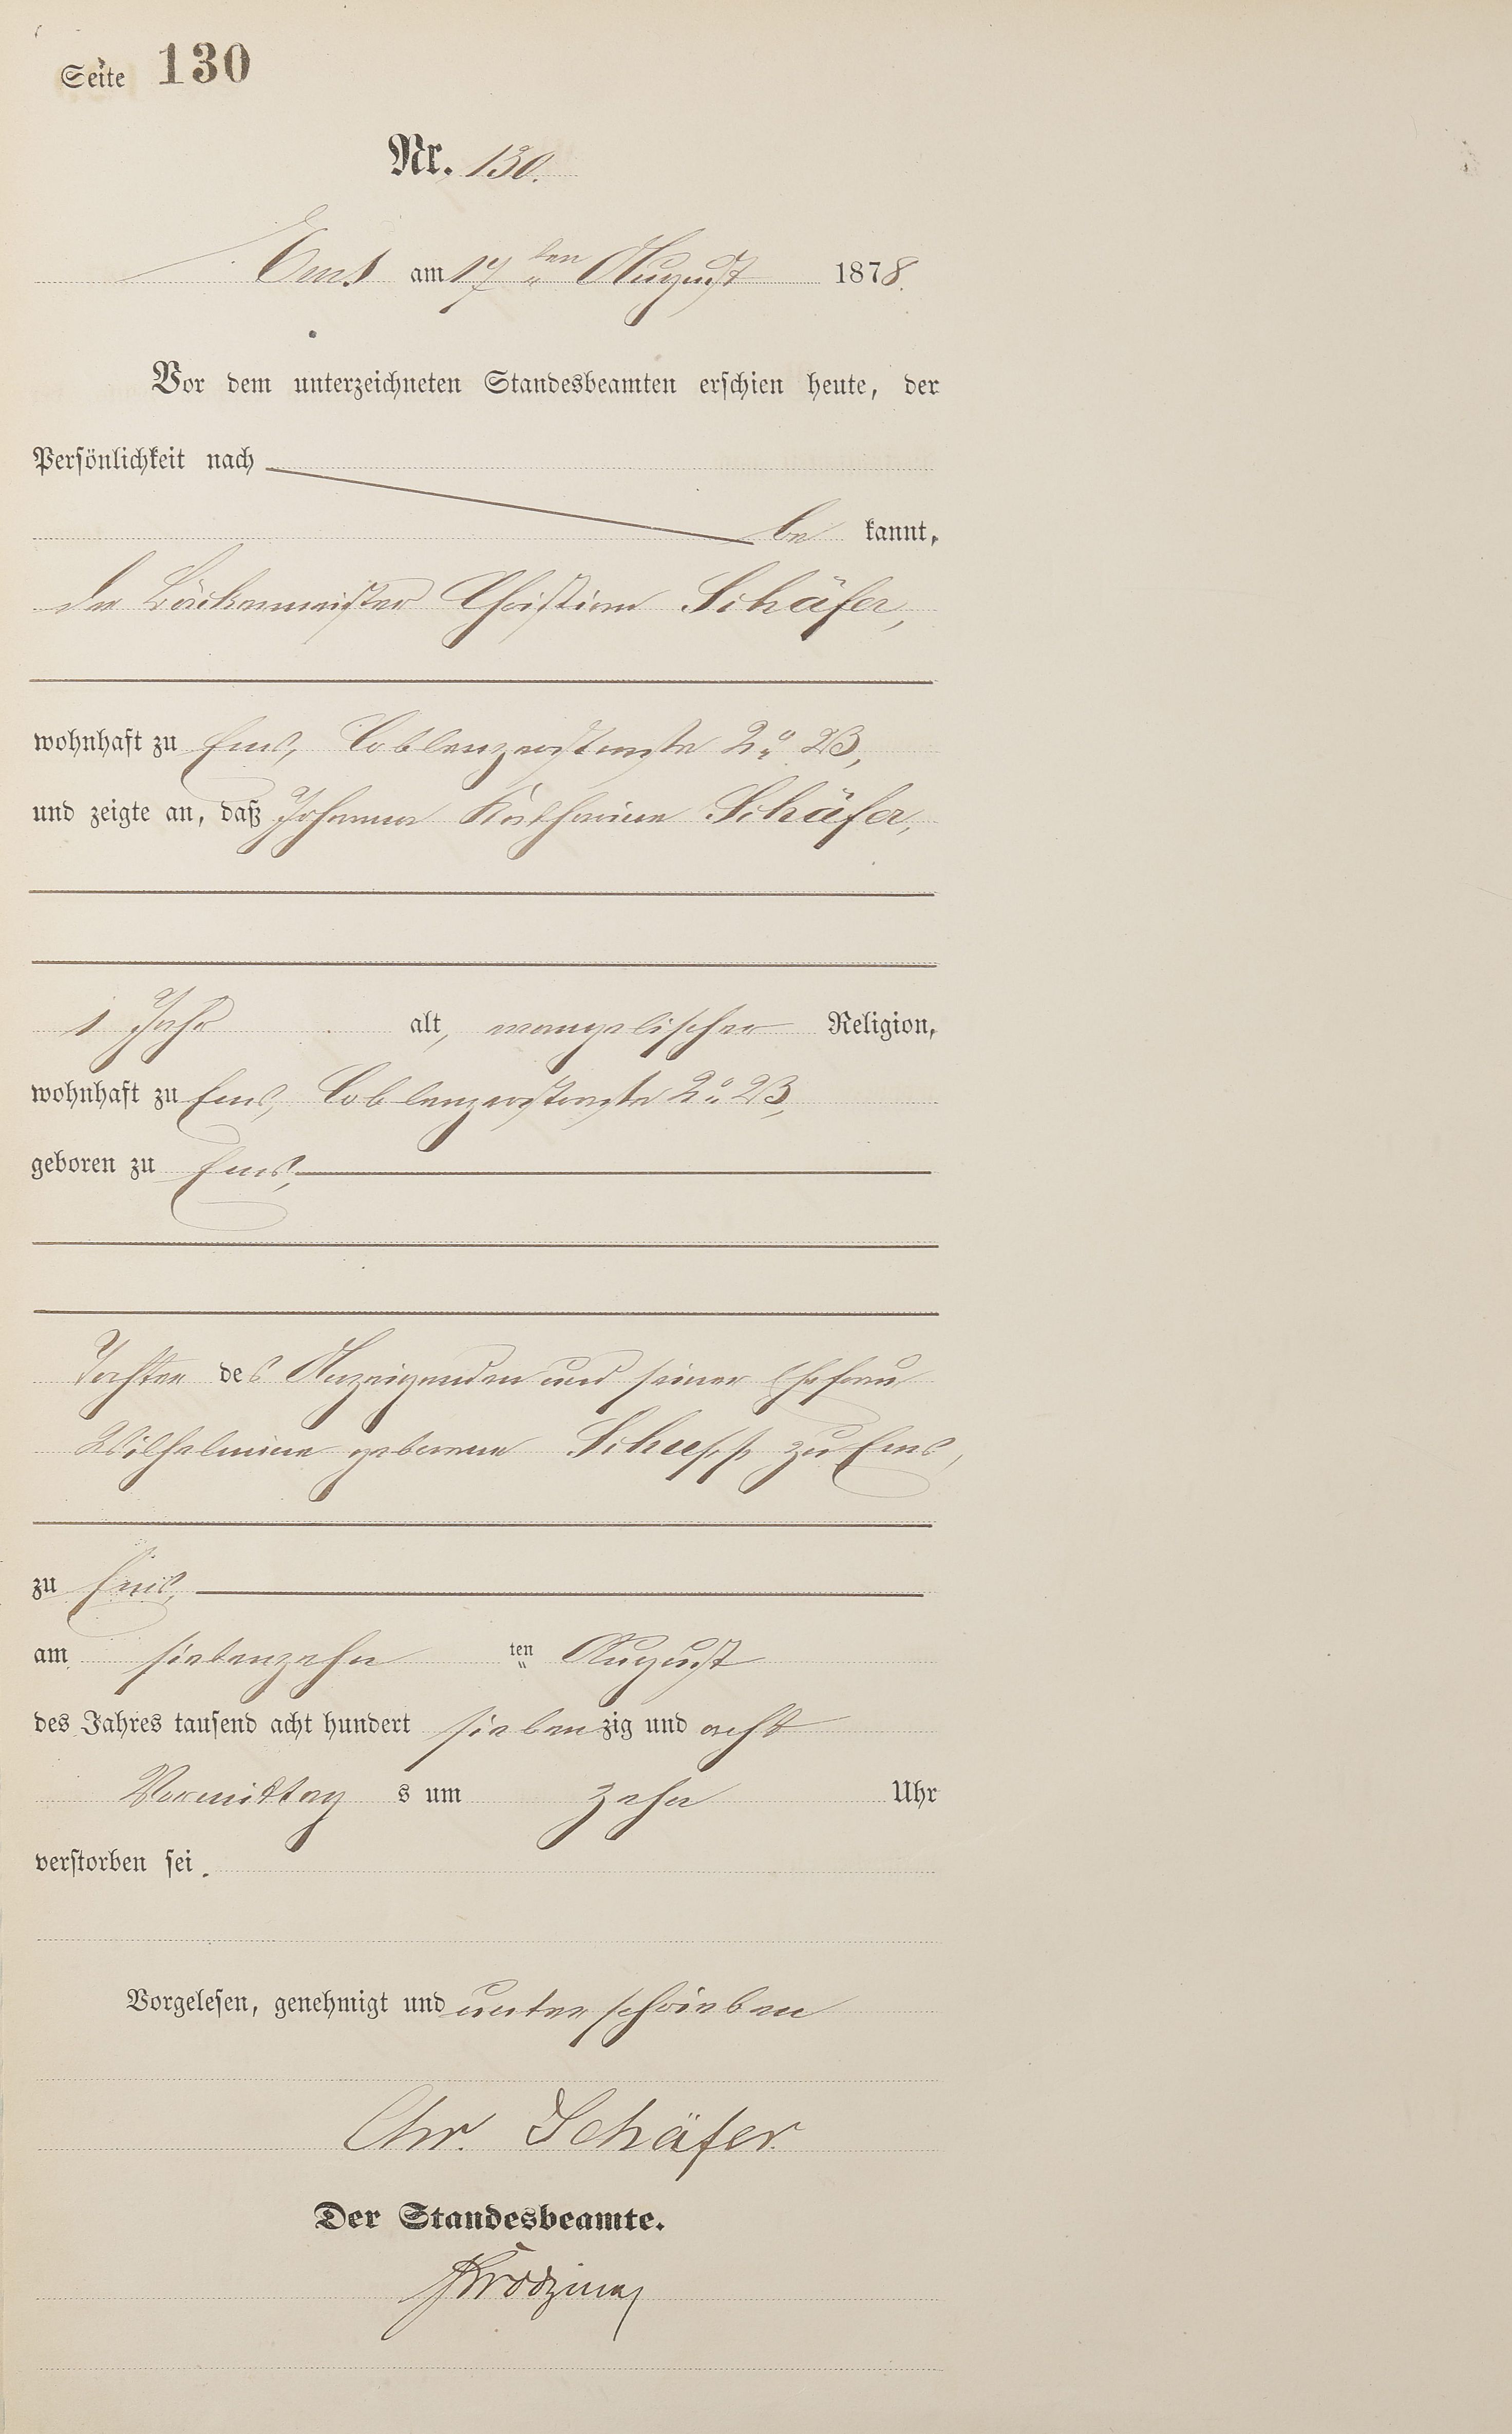 Seite 130
Nr. 130.
Ems am 17ten August 1878.
Vor dem unterzeichneten Standesbeamten erschien heute, der
Persönlichkeit nach
be kannt,
der Bäckermeister Christian Schäfer,
wohnhaft zu Ems, Coblenzerstraße
und zeigte an, daß Johanna Katharina Schäfer,
1 Jahr alt, evangelischer Religion,
wohnhaft zu Ems, Coblenzerstraße
geboren zu Ems,
Tochter des Anzeigenden und seiner Ehefrau
Wilhelmine geborene Schupp zu Ems,
zu Ems,
am siebenzehn ten August
des Jahres tausend acht hundert siebenzig und acht
Vormittag s um zehn Uhr
verstorben sei.
Vorgelesen, genehmigt und unterschrieben
Chr. Schäfer.
Der Standesbeamte.